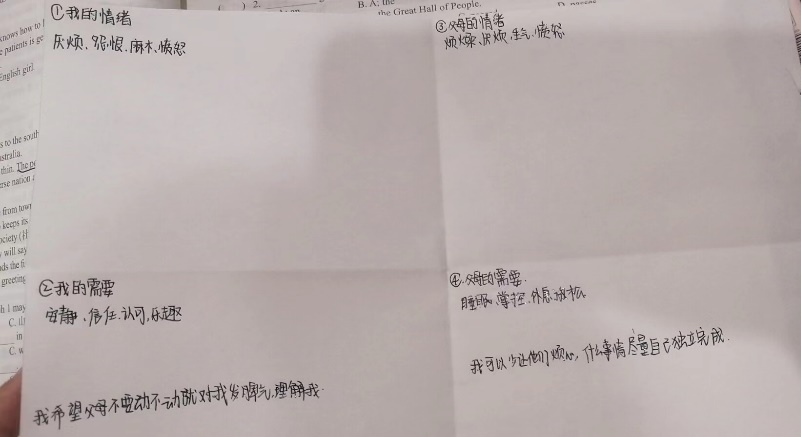 knows how to
patients is ge
English girl
s to the south
stralia.
thin. The pe
erse nation a
from town
keeps its
ociety (H
will say
ds the fi
greeting
h I may
C. th
in
C. w
( ) 2.
B. A; the
the Great Hall of People.
①我的情绪
厌烦、怨恨、麻木、愤怒
③父母的情绪
烦燥、厌烦、生气、愤怒
②我的需要
安静、信任、认可、乐趣
我希望父母不要动不动就对我发脾气,理解我.
④.父母的需要.
睡眠、掌控、休息、放松
我可以少让他们烦心,什么事情尽量自己独立完成.